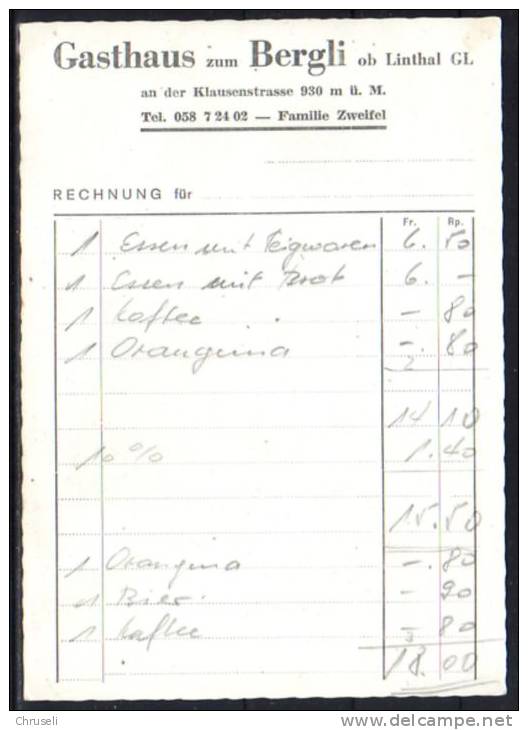 Gasthaus zum Bergli ob Linthal GL
an der Klausenstrasse 930 m ü. M.
Tel. 058 7 24 02 — Familie Zweifel
RECHNUNG für
Fr. Rp.
1 Essen mit Teigwaren 6. 50
1 Essen mit Brot 6. –
1 Kaffee – 80
1 Orangina –. 80
2
14 10
10 % 1. 40
15. 50
1 Orangina –. 80
1 Bier – 90
1 Kaffee – 80
18. 00
Chruseli
www.delcampe.net